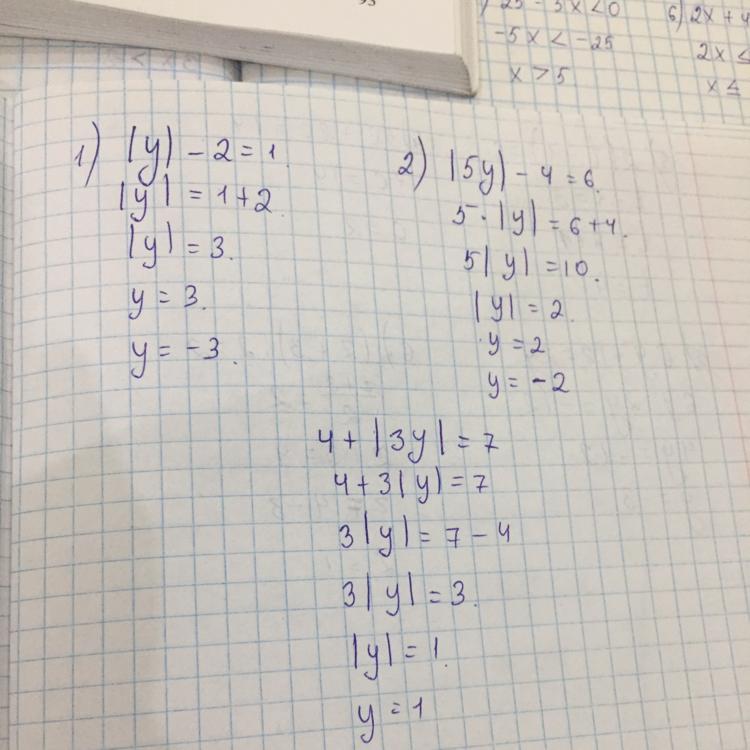 25 - 5x < 0
-5x < -25
x > 5
6) 2x + 4
2x ≤
x ≤
1) |y| - 2 = 1.
|y| = 1 + 2
|y| = 3.
y = 3.
y = -3.
2) |5y| - 4 = 6.
5 · |y| = 6 + 4.
5|y| = 10.
|y| = 2.
y = 2
y = -2
4 + |3y| = 7
4 + 3|y| = 7
3|y| = 7 - 4
3|y| = 3.
|y| = 1.
y = 1